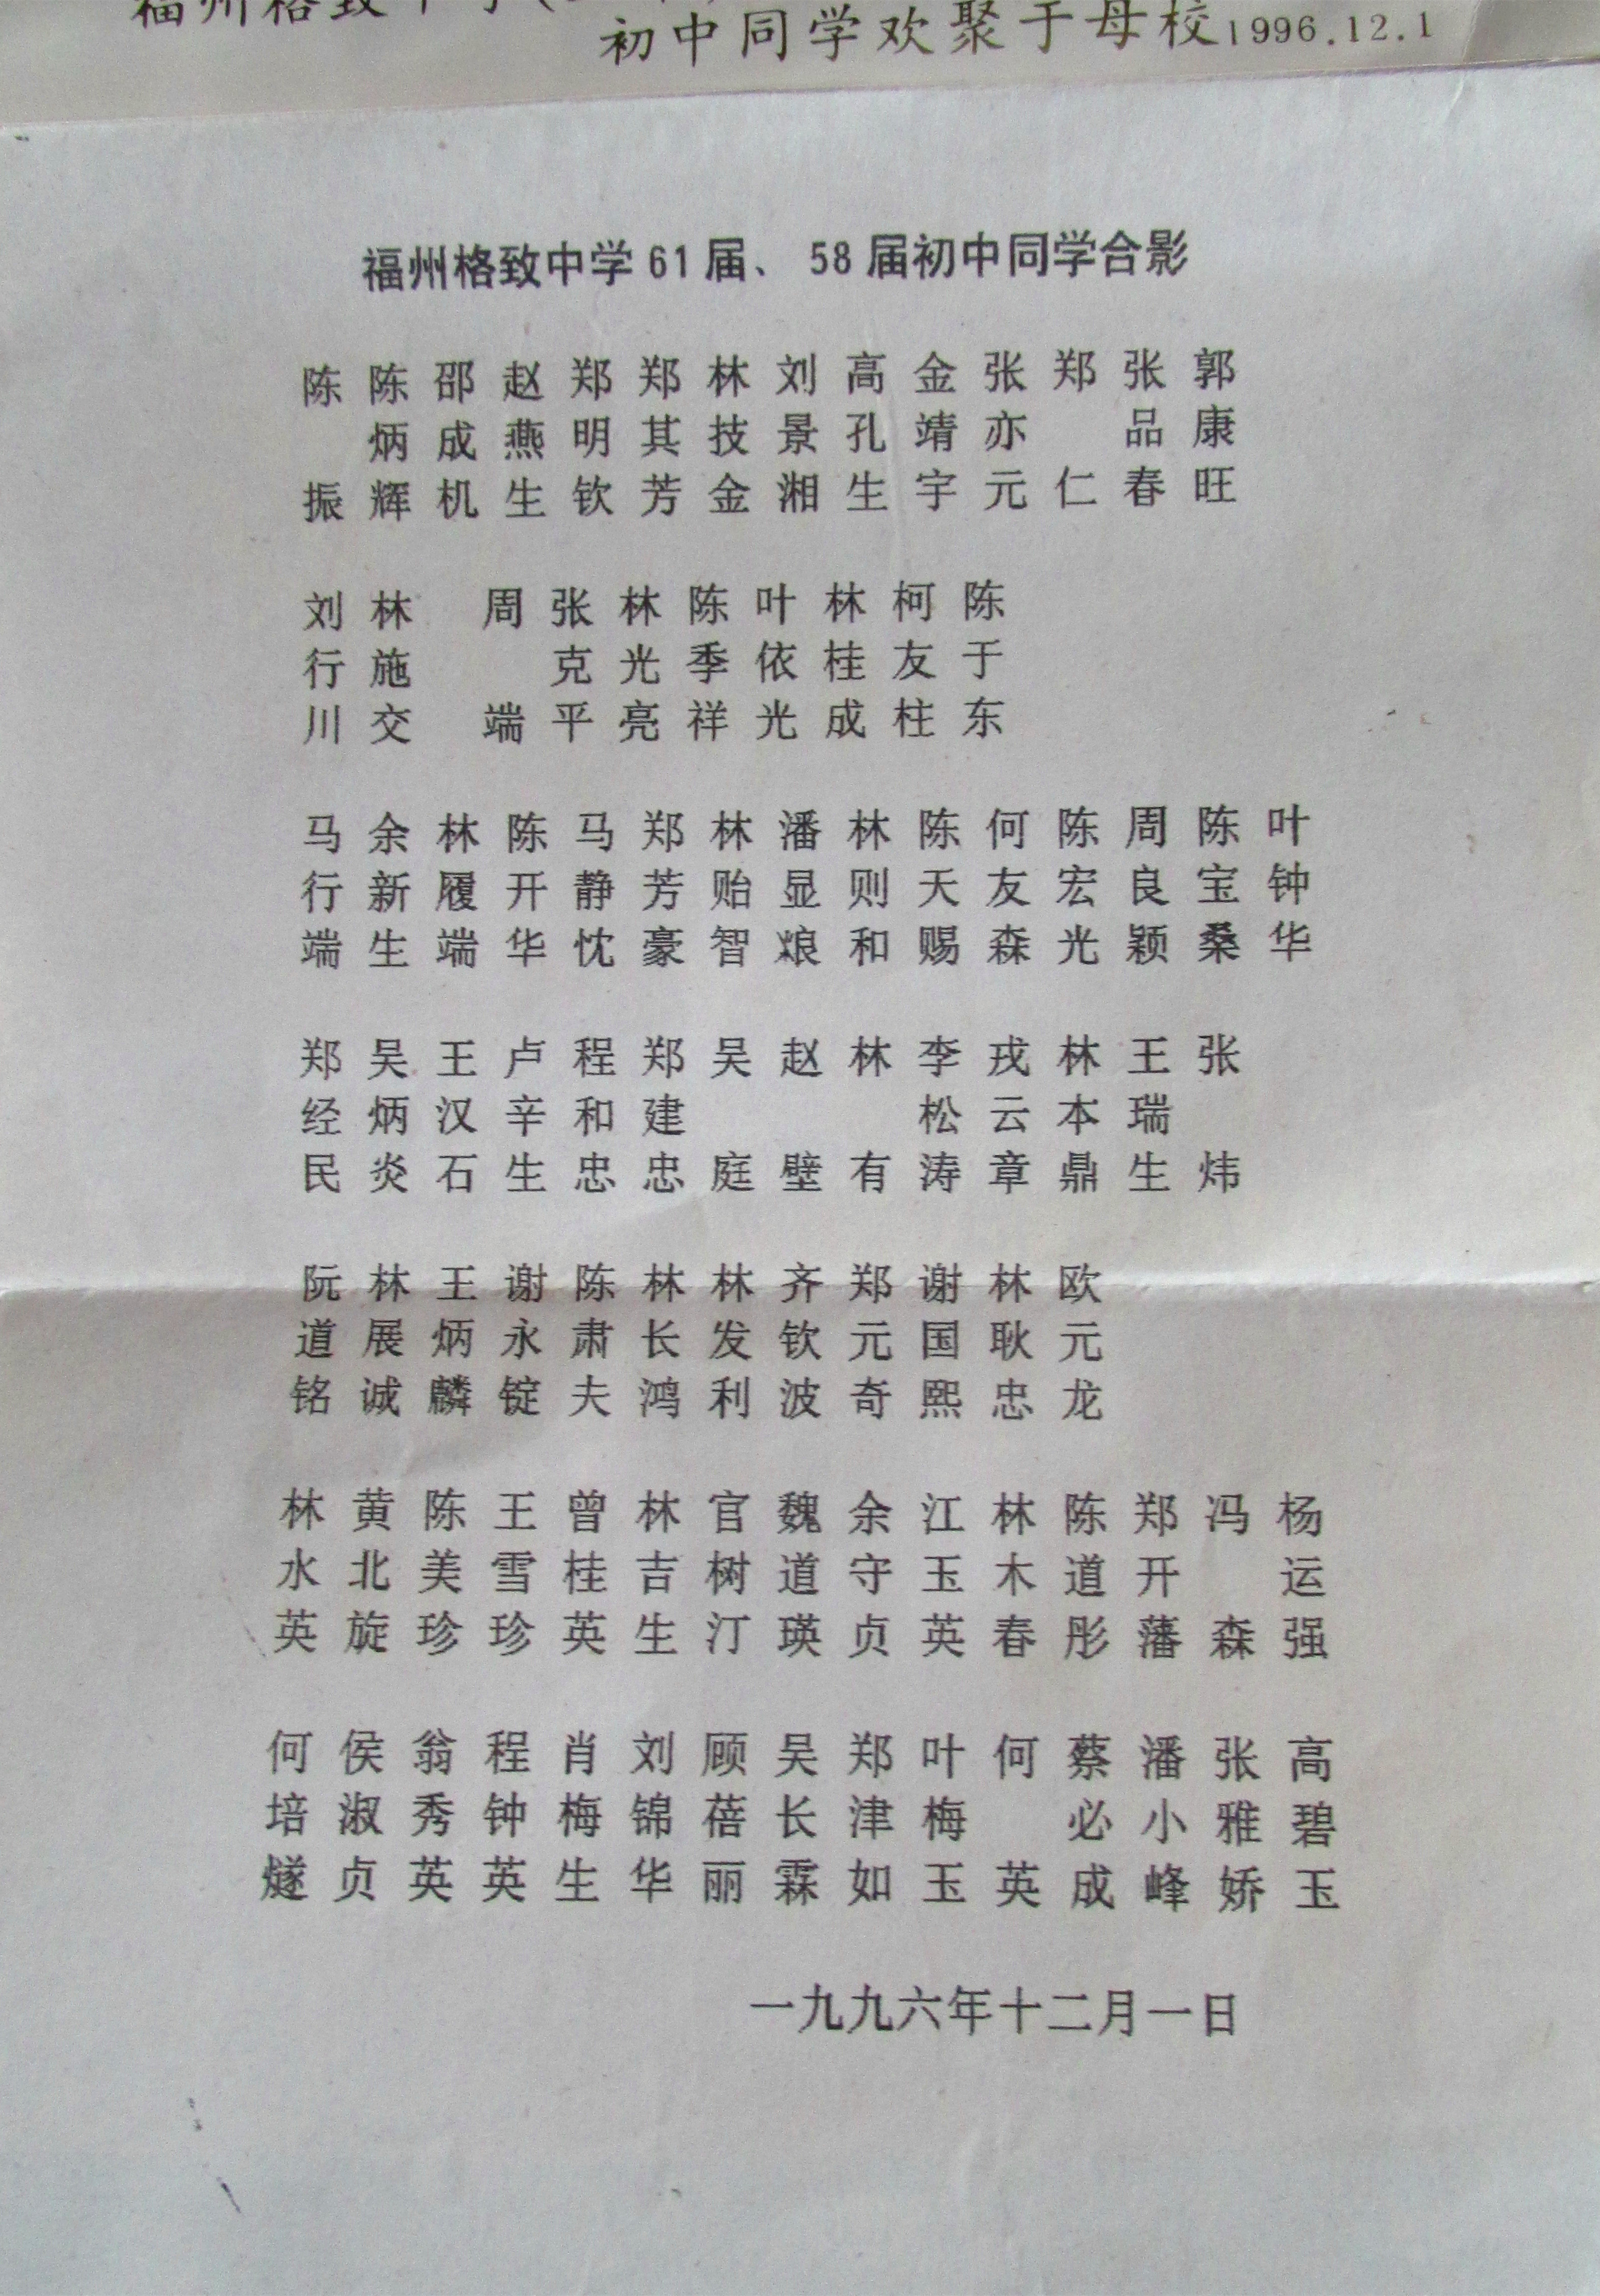 福州格致中学
初中同学欢聚于母校1996.12.1
福州格致中学61届、58届初中同学合影
陈 陈 邵 赵 郑 郑 林 刘 高 金 张 郑 张 郭
炳 成 燕 明 其 技 景 孔 靖 亦 品 康
振 辉 机 生 钦 芳 金 湘 生 宇 元 仁 春 旺
刘 林 周 张 林 陈 叶 林 柯 陈
行 施 克 光 季 依 桂 友 于
川 交 端 平 亮 祥 光 成 柱 东
马 余 林 陈 马 郑 林 潘 林 陈 何 陈 周 陈 叶
行 新 履 开 静 芳 贻 显 则 天 友 宏 良 宝 钟
端 生 端 华 忱 豪 智 烺 和 赐 森 光 颖 桑 华
郑 吴 王 卢 程 郑 吴 赵 林 李 戎 林 王 张
经 炳 汉 辛 和 建 松 云 本 瑞
民 炎 石 生 忠 忠 庭 壁 有 涛 章 鼎 生 炜
阮 林 王 谢 陈 林 林 齐 郑 谢 林 欧
道 展 炳 永 肃 长 发 钦 元 国 耿 元
铭 诚 麟 锭 夫 鸿 利 波 奇 熙 忠 龙
林 黄 陈 王 曾 林 官 魏 余 江 林 陈 郑 冯 杨
水 北 美 雪 桂 吉 树 道 守 玉 木 道 开 运
英 旋 珍 珍 英 生 汀 瑛 贞 英 春 彤 藩 森 强
何 侯 翁 程 肖 刘 顾 吴 郑 叶 何 蔡 潘 张 高
培 淑 秀 钟 梅 锦 蓓 长 津 梅 必 小 雅 碧
燧 贞 英 英 生 华 丽 霖 如 玉 英 成 峰 娇 玉
一九九六年十二月一日